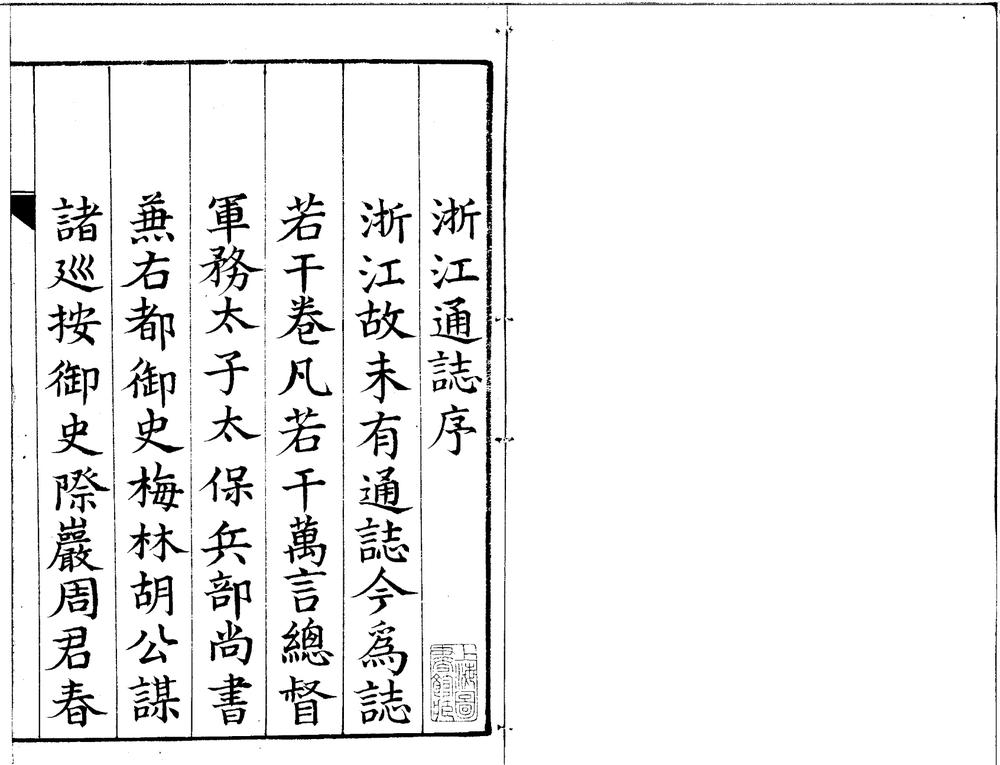 浙江通誌序
浙江故未有通誌今爲誌
若干卷凡若干萬言總督
軍務太子太保兵部尚書
蕪右都御史梅林胡公謀
諸廵按御史際巖周君春
上海圖
書館藏